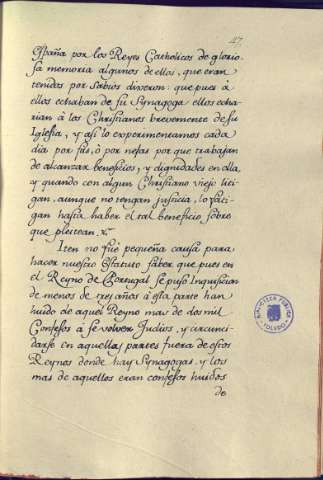 47.
España por los Reyes Catholicos de glorio-
sa memoria algunos de ellos, que eran
tenidos por sabios dixeron: que pues à
ellos echaban de su Synagoga ellos echa-
rian à los Christianos brevemente de su
Iglesia, y asi lo experimentamos cada
dia por fas, ò por nefas por que trabajan
de alcanzar beneficios, y dignidades en ella,
y quando con algun Christiano viejo liti-
gan, aunque no tengan justicia, lo fati-
gan hasta haber el tal beneficio sobre
que pleitean.
Iten no fué pequeña causa para
hacer nuestro Estatuto saber que pues en
el Reyno de Portugal se puso Inquisicion
de menos de tres años à esta parte han
huido de aquel Reyno mas de dos mil
Confesos à se volver Judios, y circunci-
darse en aquellas partes fuera de estos
Reynos donde hay Synagogas, y los
mas de aquellos eran confesos huidos
de
BIBLIOTECA PUBLICA
TOLEDO